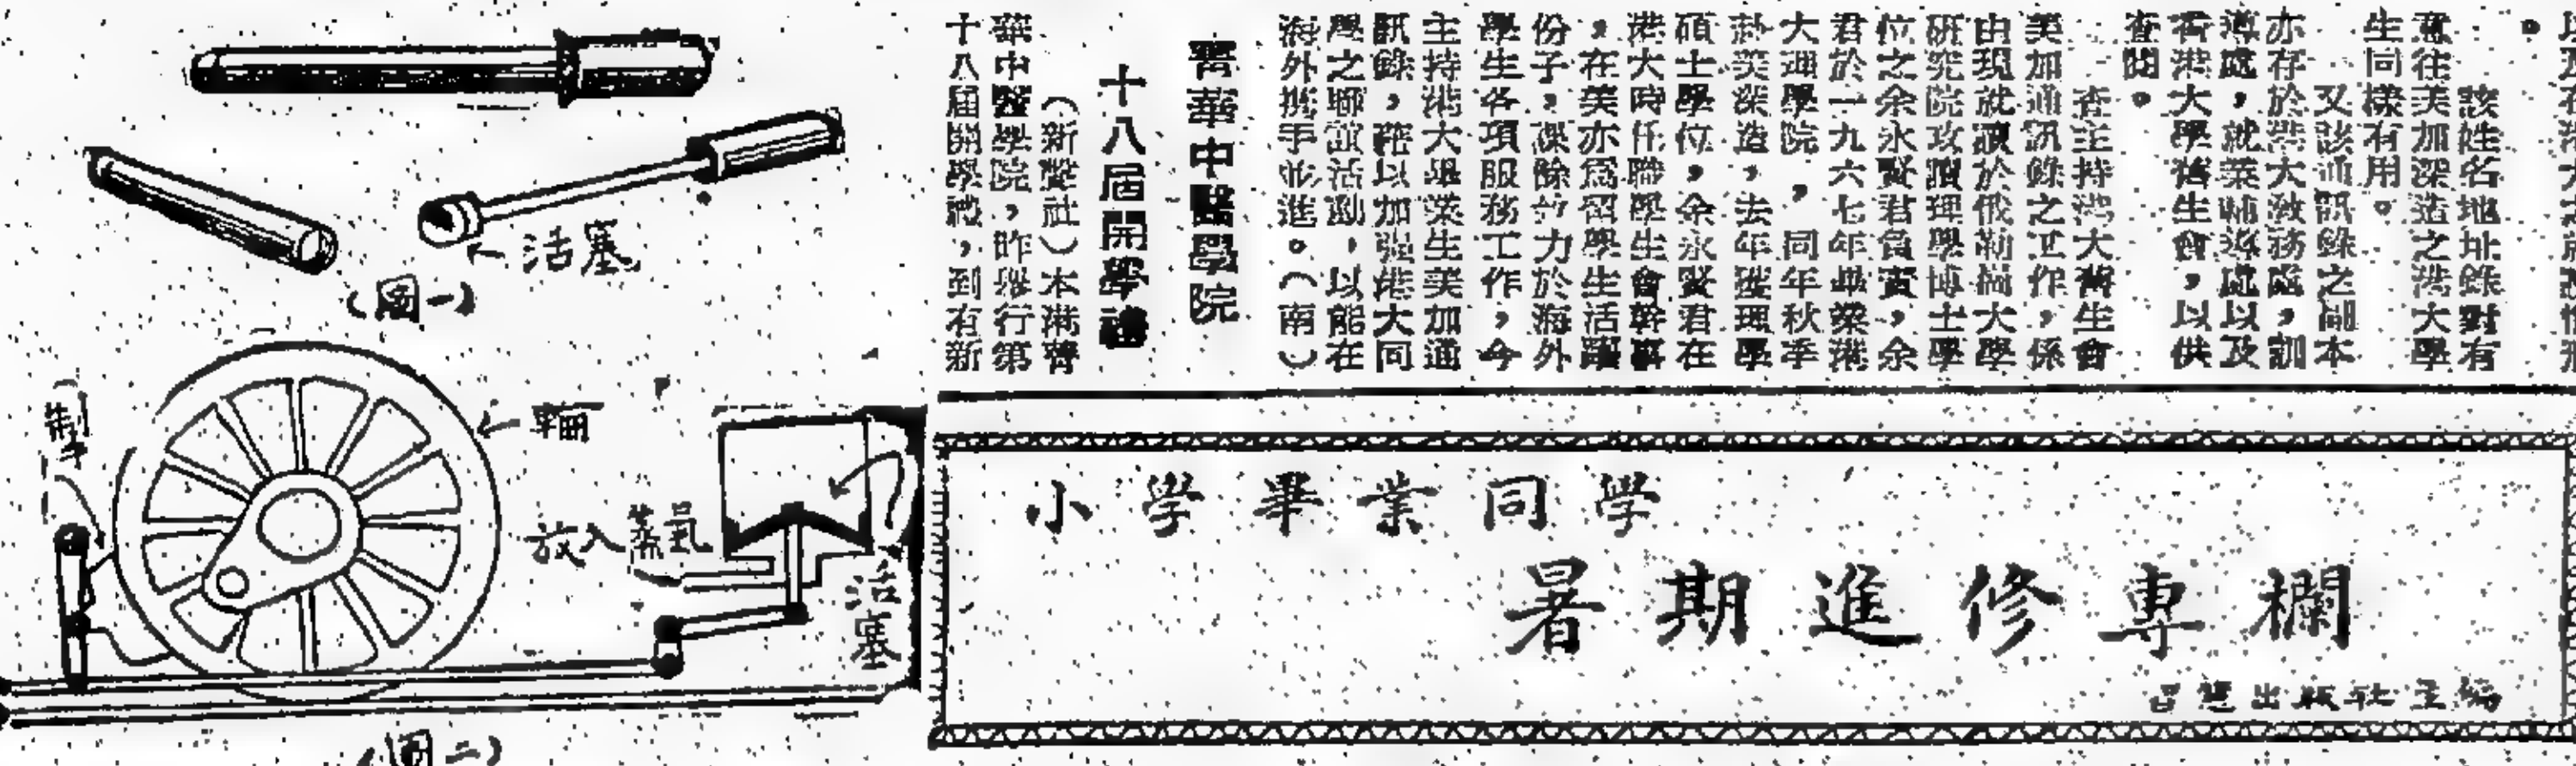 該姓名地址錄對有
意往美加深造之港大學
生同樣有用。
又該通訊錄之副本
亦存於港大教務處，訓
導處，就業輔導處以及
香港大學舊生會，以供
查閱。
查主持港大舊生會
美加通訊錄之工作，係
由現就讀於俄勒崗大學
研究院攻讀理學博士學
位之余永賢君負責，余
君於一九六七年畢業港
大理學院，同年秋季
赴美深造，去年獲理學
碩士學位，余永賢君在
港大時任職學生會幹事
，在美亦為留學生活躍
份子，課餘致力於海外
學生各項服務工作，今
主持港大畢業生美加通
訊錄，藉以加强港大同
學之聯誼活動，以能在
海外携手並進。（南）
菁華中醫學院
十八屆開學禮
（新聲社）本港菁
華中醫學院，昨舉行第
十八屆開學禮，到有新
活塞
（圖一）
掣
輪
放入蒸氣
活塞
（圖二）
小學畢業同學
暑期進修專欄
出版社主編